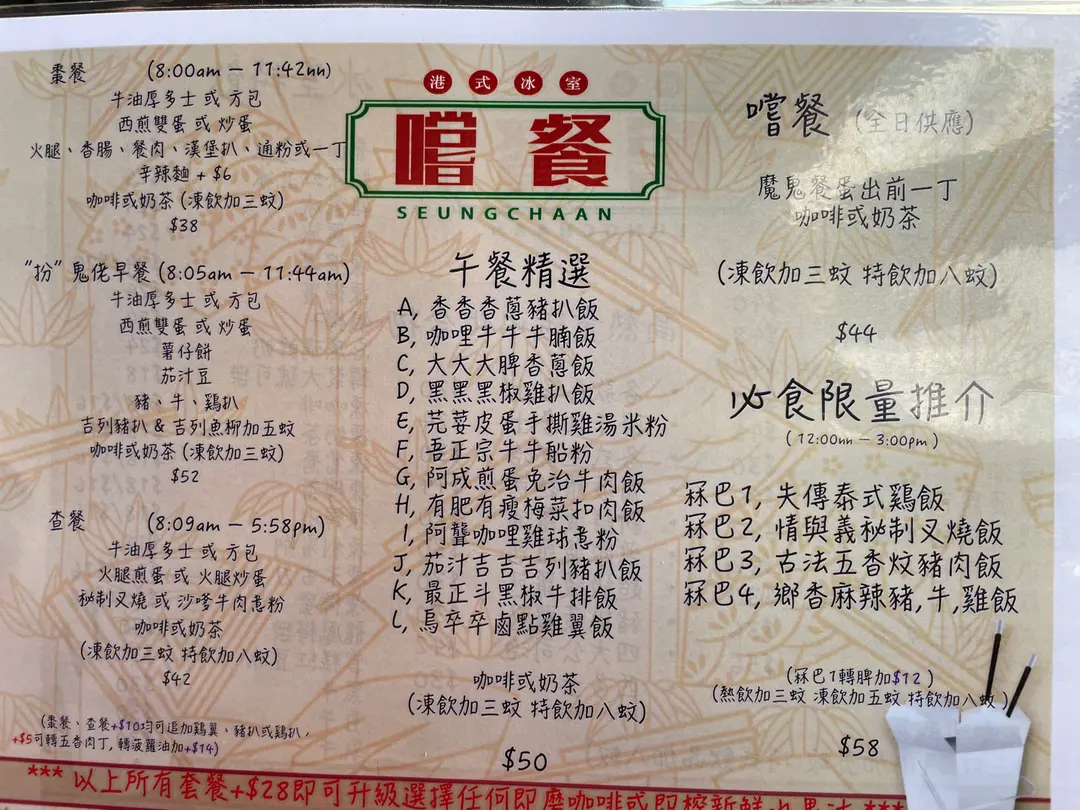 棗餐 (8:00am — 11:42nn)
牛油厚多士 或 方包
西煎雙蛋 或 炒蛋
火腿、香腸、餐肉、漢堡扒、通粉或一丁
辛辣麵 + $6
咖啡或奶茶 (凍飲加三蚊)
$38
"扮" 鬼佬早餐 (8:05am — 11:44am)
牛油厚多士 或 方包
西煎雙蛋 或 炒蛋
薯仔餅
茄汁豆
豬、牛、鷄扒
吉列豬扒 & 吉列魚柳加五蚊
咖啡或奶茶 (凍飲加三蚊)
$52
查餐 (8:09am — 5:58pm)
牛油厚多士 或 方包
火腿煎蛋 或 火腿炒蛋
秘制叉燒 或 沙嗲牛肉煮粉
咖啡或奶茶
(凍飲加三蚊 特飲加八蚊)
$42
(棗餐、查餐+$10均可追加鷄翼、豬扒或鷄扒,
+$5可轉五香肉丁, 轉菠蘿油加+$14)
港式冰室
嚐餐
SEUNGCHAAN
午餐精選
A, 香香香蔥豬扒飯
B, 咖哩牛牛牛腩飯
C, 大大大脾香蔥飯
D, 黑黑黑椒雞扒飯
E, 芫荽皮蛋手撕雞湯米粉
F, 吾正宗牛牛船粉
G, 阿成煎蛋免治牛肉飯
H, 有肥有瘦梅菜扣肉飯
I, 阿聾咖哩雞球煮粉
J, 茄汁吉吉吉列豬扒飯
K, 最正斗黑椒牛排飯
L, 烏卒卒鹵點雞翼飯
咖啡或奶茶
(凍飲加三蚊 特飲加八蚊)
$50
嚐餐 (全日供應)
魔鬼餐蛋出前一丁
咖啡或奶茶
(凍飲加三蚊 特飲加八蚊)
$44
必食限量推介
(12:00nn — 3:00pm)
冧巴1, 失傳泰式鷄飯
冧巴2, 情與義秘制叉燒飯
冧巴3, 古法五香炆豬肉飯
冧巴4, 鄉香麻辣豬,牛,雞飯
(冧巴1轉脾加$12)
(熱飲加三蚊 凍飲加五蚊 特飲加八蚊)
$58
*** 以上所有套餐+$28即可升級選擇任何即磨咖啡或即榨新鮮水果汁 ***